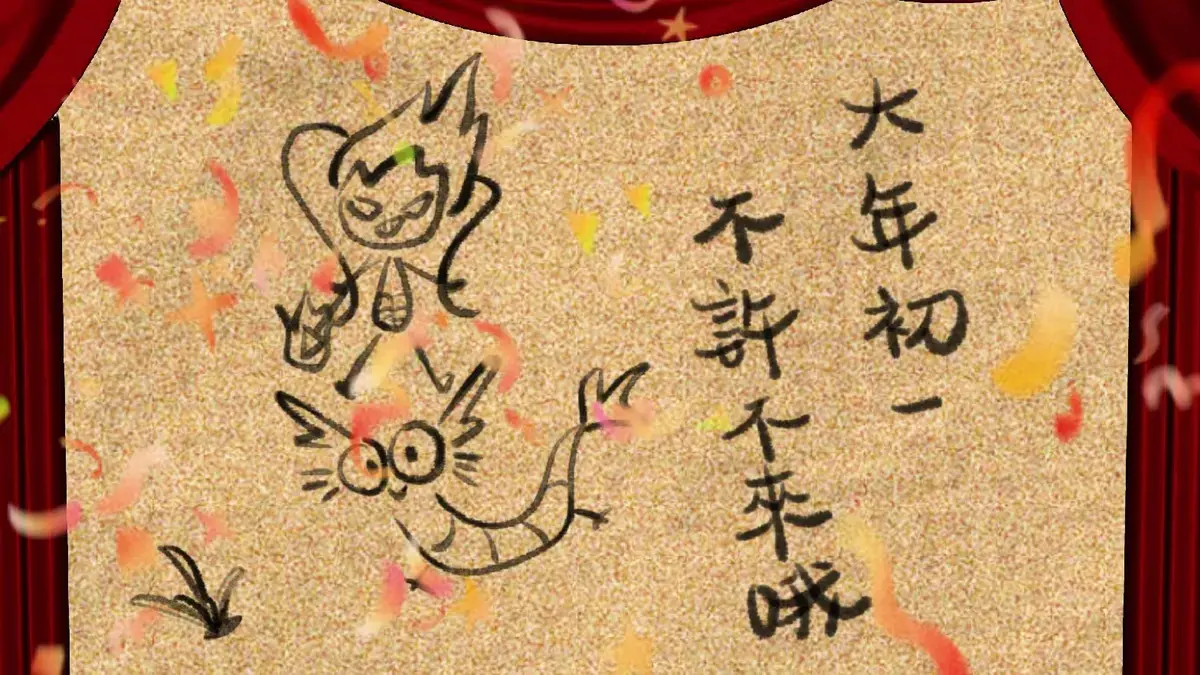 大年初一
不許不來哦